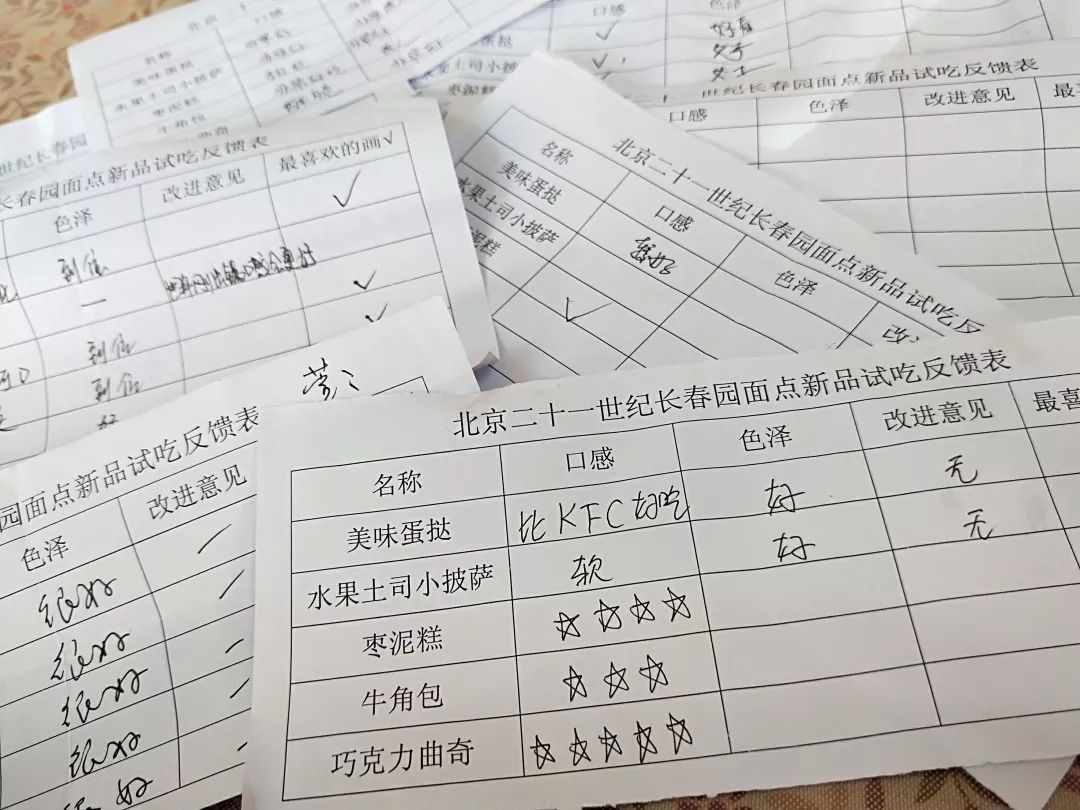 北京二十一
口感
名称
美味蛋挞
水果土司小披萨
枣泥糕
牛角包
口感 色泽
✓ 好看
水果土司小披萨 ✓
枣泥糕
世纪长春园面点新品试吃反馈表
口感 色泽 改进意见 最喜
世纪长春园
世纪长春园面点新品试吃反馈表
色泽 改进意见 最喜欢的画✓
✓
到位
一 ✓
到位 ✓
到位
好
北京二十一世纪长春园面点新品试吃反馈表
名称 口感 色泽
美味蛋挞 很好
水果土司小披萨
泥糕 ✓
园面点新品试吃反馈表
色泽 改进意见
很好
很好
很好
很好
很好
北京二十一世纪长春园面点新品试吃反馈表
名称 口感 色泽 改进意见 最喜
美味蛋挞 比KFC好吃 好 无
水果土司小披萨 软 好 无
枣泥糕 ☆☆☆☆
牛角包 ☆☆☆
巧克力曲奇 ☆☆☆☆☆